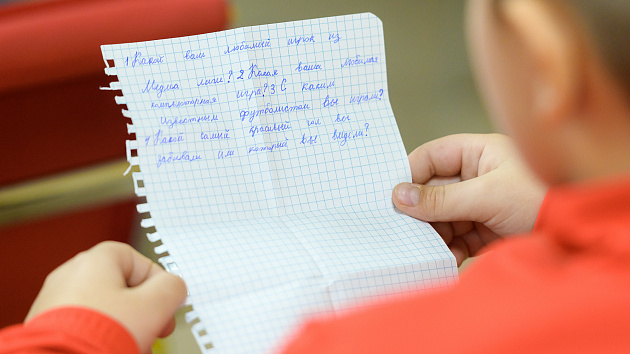 1 Какой ваш любимый игрок из
Медиа лиги? 2 Какая ваша любимая
компьюторная игра? 3 С каким
известным футболистом вы играли?
4 Какой самый красивый гол вы
забивали или который вы видели?